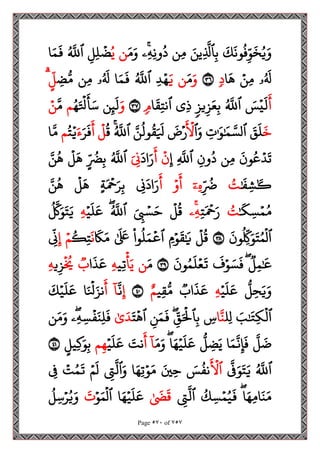 وَيُخَوِّفُونَكَ بِٱلَّذِينَ مِن دُونِهِۦۚ وَمَن يُضْلِلِ ٱللَّهُ فَمَا
لَهُۥ مِنْ هَادٍ ٣٦ وَمَن يَهْدِ ٱللَّهُ فَمَا لَهُۥ مِن مُّضِلٍّۗ
أَلَيْسَ ٱللَّهُ بِعَزِيزٍ ذِى ٱنتِقَامٍ ٣٧ وَلَئِن سَأَلْتَهُم مَّنْ
خَلَقَ ٱلسَّمَـٰوَٰتِ وَٱلْأَرْضَ لَيَقُولُنَّ ٱللَّهُۚ قُلْ أَفَرَءَيْتُم مَّا
تَدْعُونَ مِن دُونِ ٱللَّهِ إِنْ أَرَادَنِىَ ٱللَّهُ بِضُرٍّ هَلْ هُنَّ
كَـٰشِفَـٰتُ ضُرِّهِۦٓ أَوْ أَرَادَنِى بِرَحْمَةٍ هَلْ هُنَّ
مُمْسِكَـٰتُ رَحْمَتِهِۦۚ قُلْ حَسْبِىَ ٱللَّهُۖ عَلَيْهِ يَتَوَكَّلُ
ٱلْمُتَوَكِّلُونَ ٣٨ قُلْ يَـٰقَوْمِ ٱعْمَلُوا۟ عَلَىٰ مَكَانَتِكُمْ إِنِّى
عَـٰمِلٌۖ فَسَوْفَ تَعْلَمُونَ ٣٩ مَن يَأْتِيهِ عَذَابٌ يُخْزِيهِ
وَيَحِلُّ عَلَيْهِ عَذَابٌ مُّقِيمٌ ٤٠ إِنَّآ أَنزَلْنَا عَلَيْكَ
ٱلْكِتَـٰبَ لِلنَّاسِ بِٱلْحَقِّۖ فَمَنِ ٱهْتَدَىٰ فَلِنَفْسِهِۦۖ وَمَن
ضَلَّ فَإِنَّمَا يَضِلُّ عَلَيْهَاۖ وَمَآ أَنتَ عَلَيْهِم بِوَكِيلٍ ٤١
ٱللَّهُ يَتَوَفَّى ٱلْأَنفُسَ حِينَ مَوْتِهَا وَٱلَّتِى لَمْ تَمُتْ فِى
مَنَامِهَاۖ فَيُمْسِكُ ٱلَّتِى قَضَىٰ عَلَيْهَا ٱلْمَوْتَ وَيُرْسِلُ
Page ٥٢٠ of ٢٥٧